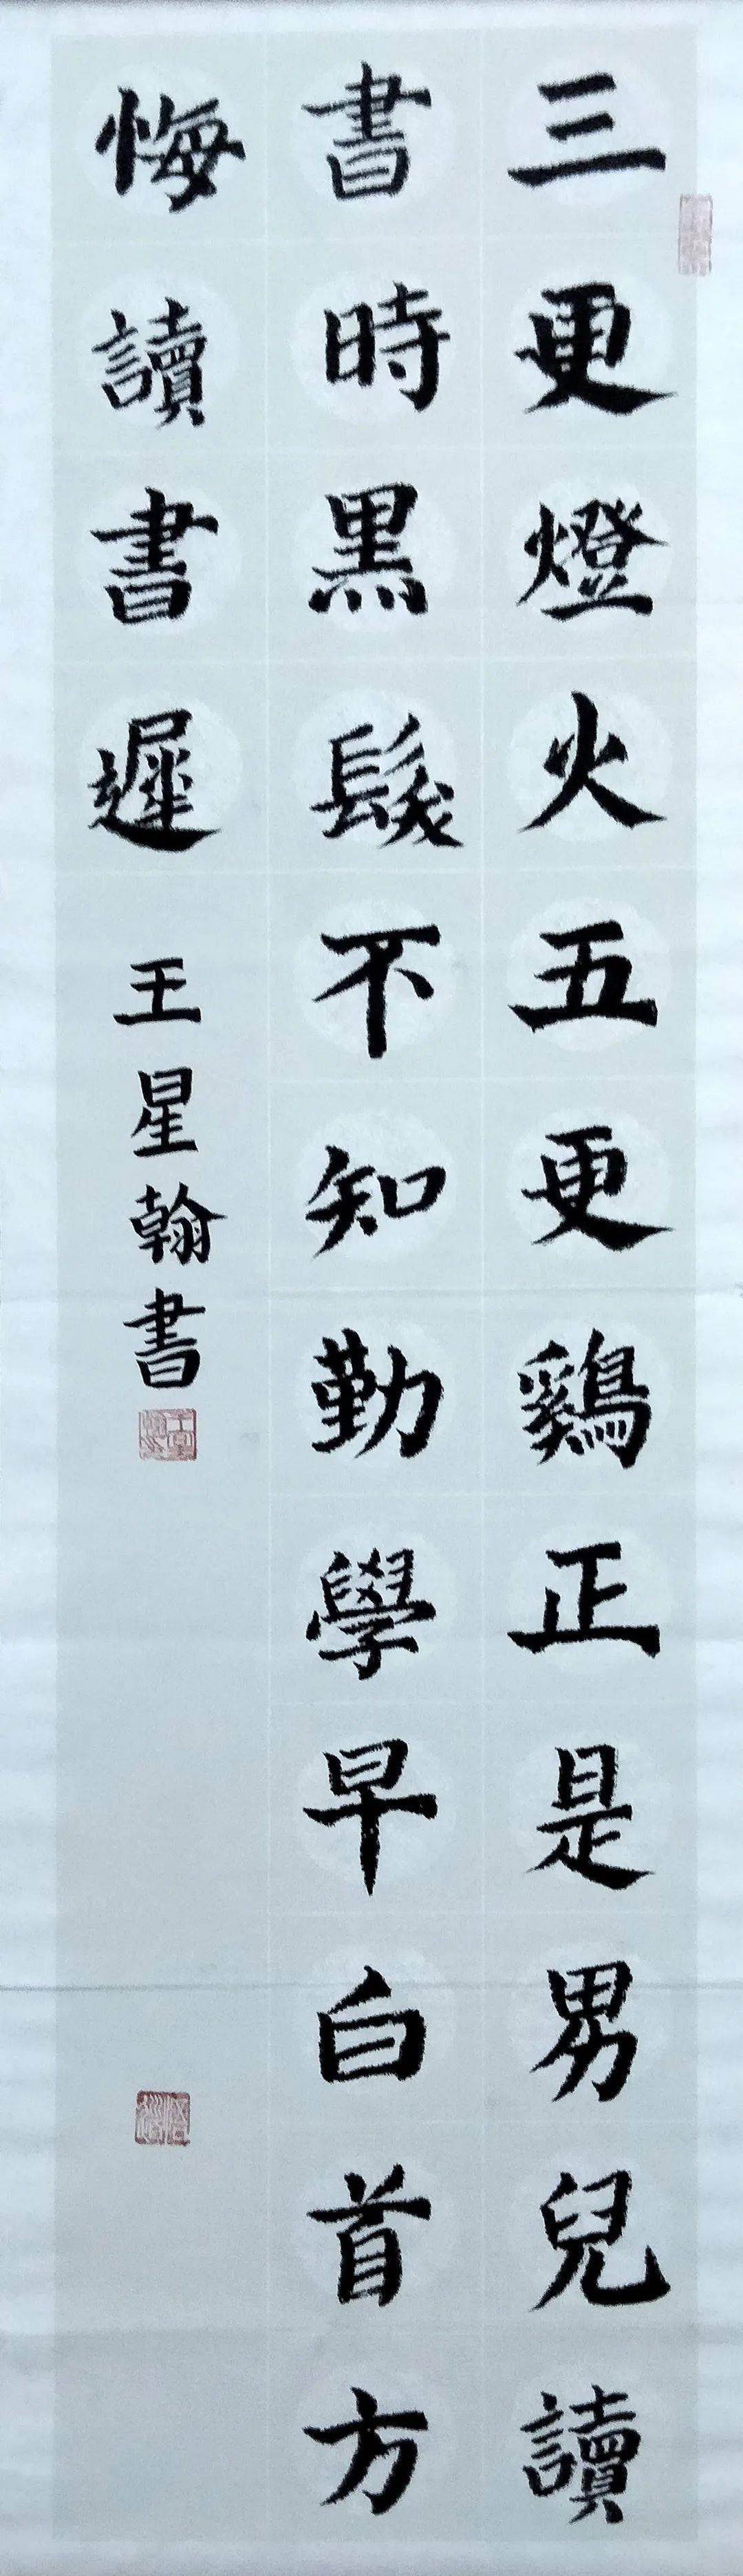 三更燈火五更鷄正是男兒讀
書時黑髮不知勤學早白首方
悔讀書遲
王星翰書